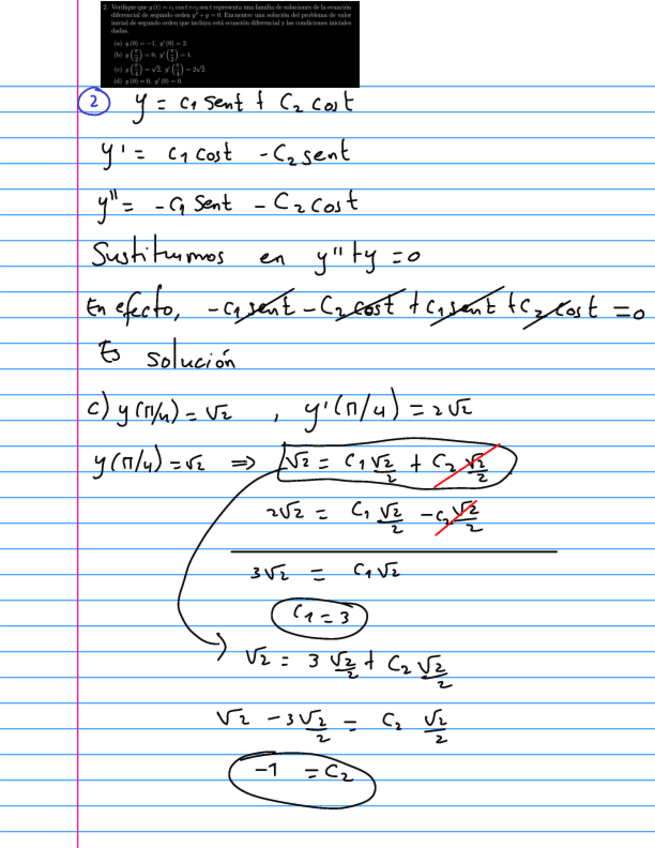 2. Verifique que y(t) = c₁ cos t + c₂ sen t representa una familia de soluciones de la ecuación
diferencial de segundo orden y'' + y = 0. Encuentre una solución del problema de valor
inicial de segundo orden que incluya está ecuación diferencial y las condiciones iniciales
dadas.
(a) y(0) = −1, y'(0) = 2.
(b) y(π/2) = 0, y'(π/2) = 1.
(c) y(π/4) = √2, y'(π/4) = 2√2.
(d) y(0) = 0, y'(0) = 0.
② y = c₁ sent + C₂ cost
y' = c₁ cost - C₂ sent
y'' = -c₁ sent - C₂ cost
Sustituimos en y'' + y = 0
En efecto, -c₁ sent - C₂ cost + c₁ sent + C₂ cost = 0
Es solución
c) y(π/4) = √2 , y'(π/4) = 2√2
y(π/4) = √2 ⇒ √2 = C₁ √2/2 + C₂ √2/2
2√2 = C₁ √2/2 - C₂ √2/2
3√2 = C₁ √2
C₁ = 3
√2 = 3 √2/2 + C₂ √2/2
√2 - 3√2/2 = C₂ √2/2
-1 = C₂